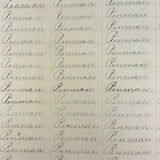 Penman Penman Penman
Penman Penman Penman
Penman Penman Penman
Penman Penman Penman
Penman Penman Penman
Penman Penman Penman
Penman Penman Penman
Penman Penman Penman
Penman Penman Penman
Penman Penman Penman
Penman Penman Penman
Penman Penman Penman